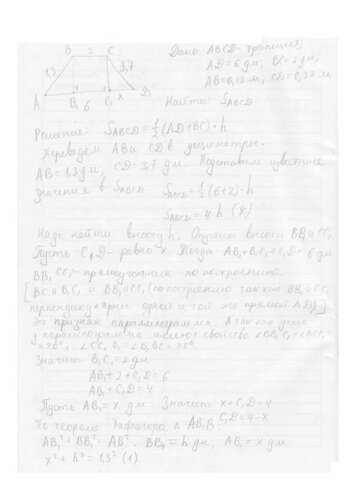 B 2 C
1,3 3,7
A B₁ 6 C₁ x D
Дано: ABCD - трапеция,
AD = 6 дм, BC = 2 дм,
AB = 0,13 м, CD = 0,37 м
Найти: S_ABCD
Решение: S_ABCD = ½(AD+BC)·h
Переведём AB и CD в дециметры.
AB = 1,3 дм, CD = 3,7 дм. Подставим известные
значения в S_ABCD S_ABCD = ½(6+2)·h
S_ABCD = 4h (*)
Надо найти высоту h. Опустим высоты BB₁ и CC₁
Пусть C₁D - равно x. Тогда AB₁+B₁C₁+C₁D = 6 дм
BB₁CC₁ - прямоугольник по построению
[BC ∥ B₁C₁ и BB₁ ∥ CC₁ (по построению так как BB₁ и CC₁
перпендикулярны одной и той же прямой AD)]
Это признак параллелограмма. А так как углы
у параллелограмма имеют свойство
Значит B₁C₁ = 2 дм
AB₁+2+C₁D = 6
AB₁+C₁D = 4
Пусть AB₁ = x дм Значит x+C₁D = 4
C₁D = 4-x
По теореме Пифагора в AB₁B
AB₁²+BB₁² = AB². BB₁ = h дм, AB₁ = x дм
x²+h² = 1,3² (1)